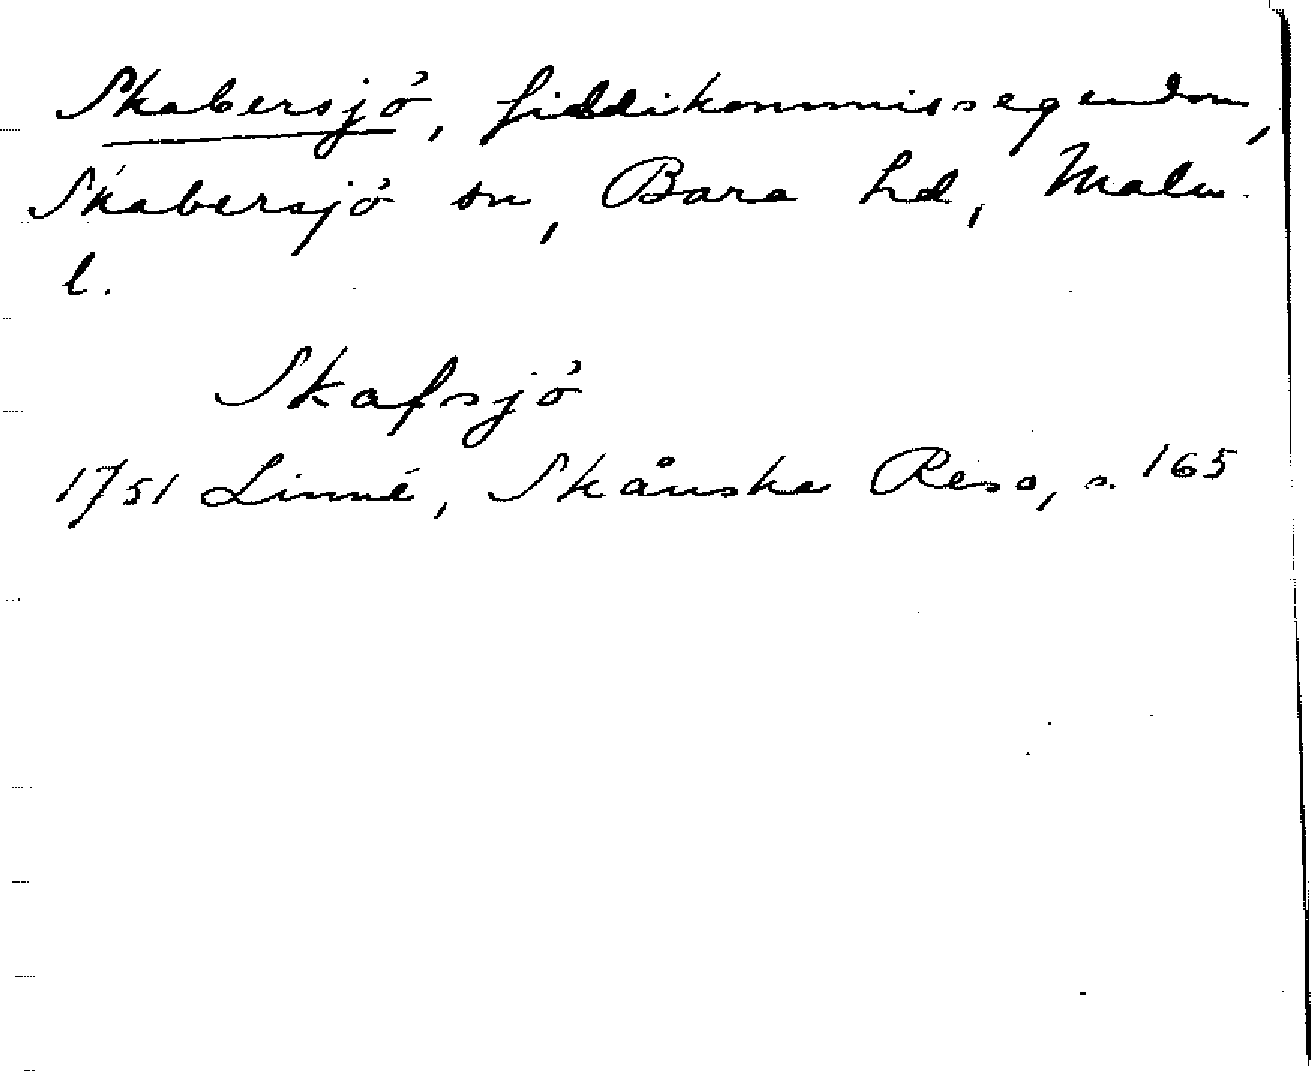 Skabersjö, fiddikommissegendom,
Skabersjö sn, Bara hd, Malm.
l.
Skafsjö
1751 Linné, Skånska Resa, s. 165